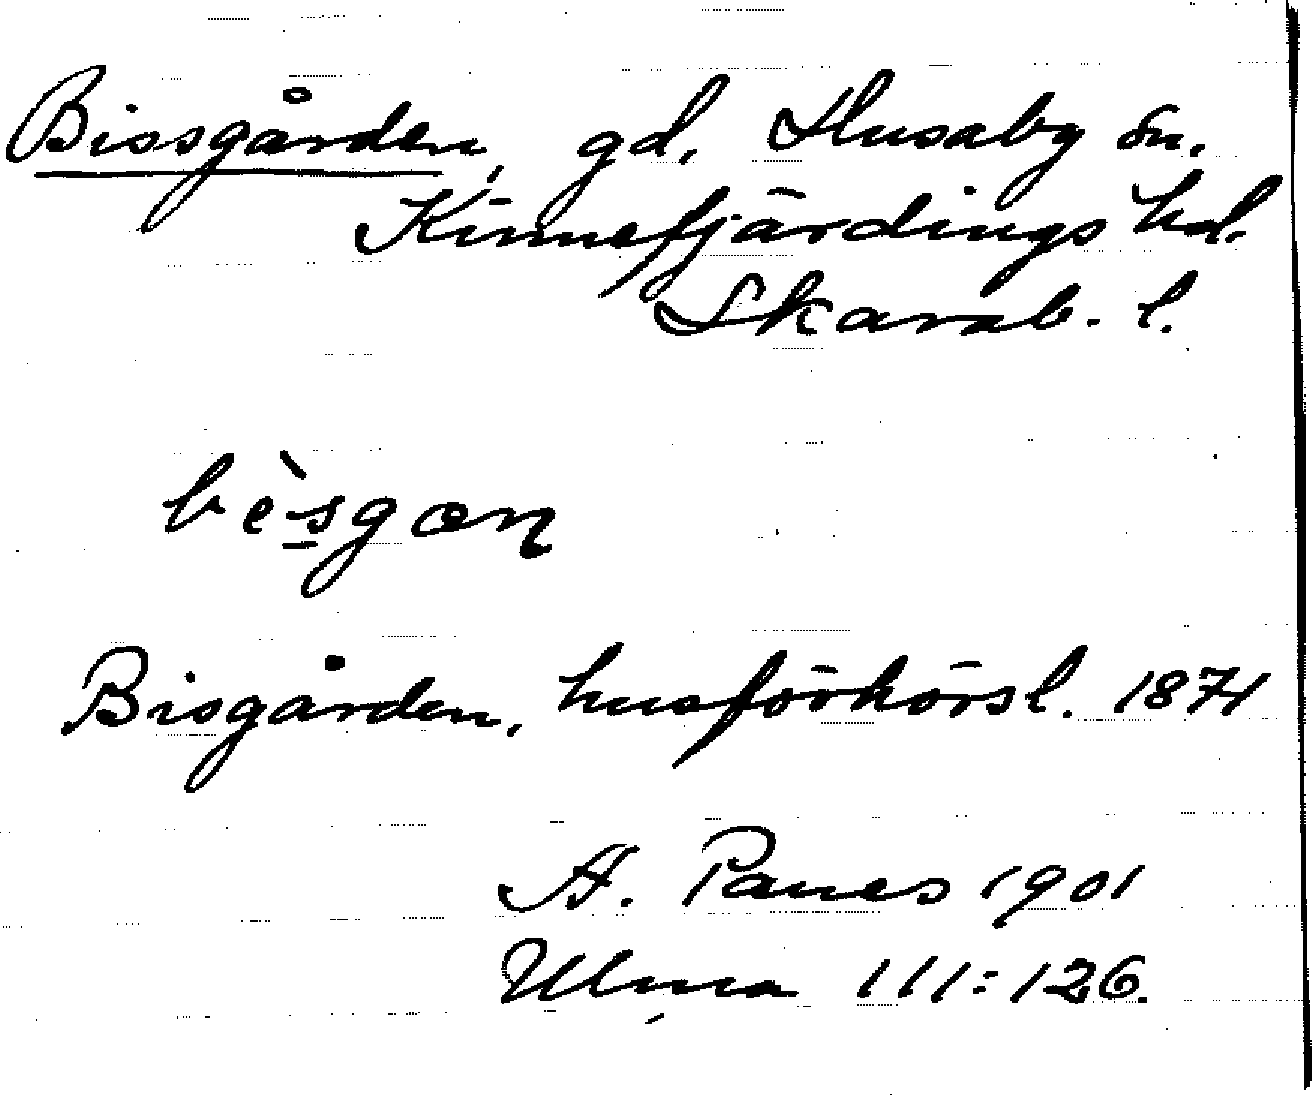 Bissgården, gd, Husaby sn.
Kinnefjärdings hd.
Skarab. l.
bèsgon
Bisgården, husförhörsl. 1871
A. Panes 1901
Ulma 111:126.